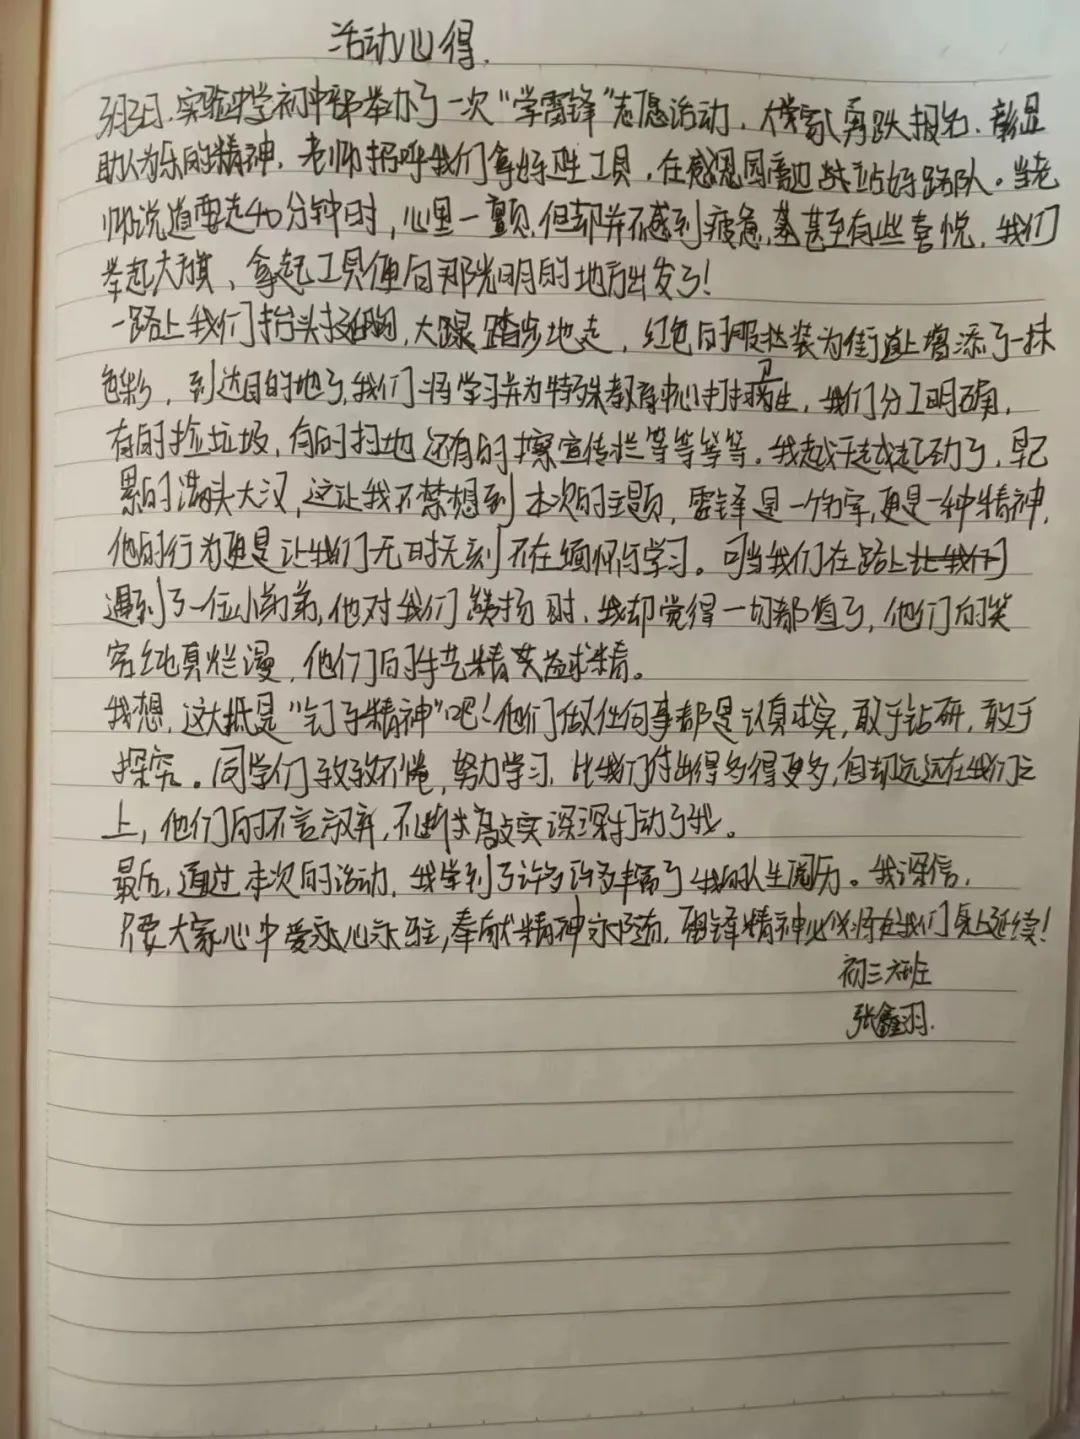 活动心得.
3月3日.实验中学初中部举办了一次“学雷锋”志愿活动,大家踊跃报名.彰显
助人为乐的精神.老师招呼我们拿好卫生工具,在感恩园旁边站好路队。当老
师说道要走40分钟时,心里一颤,但却并不感到疲惫,甚至有些喜悦,我们
举起大旗、拿起工具便向那光明的地方出发了!
一路上我们抬头挺胸,大踏步地走,红色的服装为街道上增添了一抹
色彩,到达目的地了,我们将学习并为特殊教育中心打扫卫生,我们分工明确,
有的捡垃圾,有的扫地还有的擦宣传栏等等等等。我越干越起劲了,早已
累的满头大汉,这让我不禁想到本次的主题,雷锋是一个名字,更是一种精神,
他的行为更是让我们无时无刻不在缅怀与学习。可当我们在路上
遇到了一位小弟弟,他对我们赞扬时、我却觉得一切都值了,他们的笑
容纯真烂漫,他们的手艺精益求精。
我想,这大抵是“钉子精神”吧!他们做任何事都是认真求实,敢于钻研,敢于
探究。同学们孜孜不倦,努力学习,比我们付出得多得更多,但却远远在我们之
上,他们的不言放弃,不断求实深深打动了我。
最后,通过本次的活动,我学到了许多许多丰富了我的人生阅历。我深信,
只要大家心中爱心永驻,奉献精神永远,雷锋精神必将在我们身上延续!
初三六班
张鑫羽.